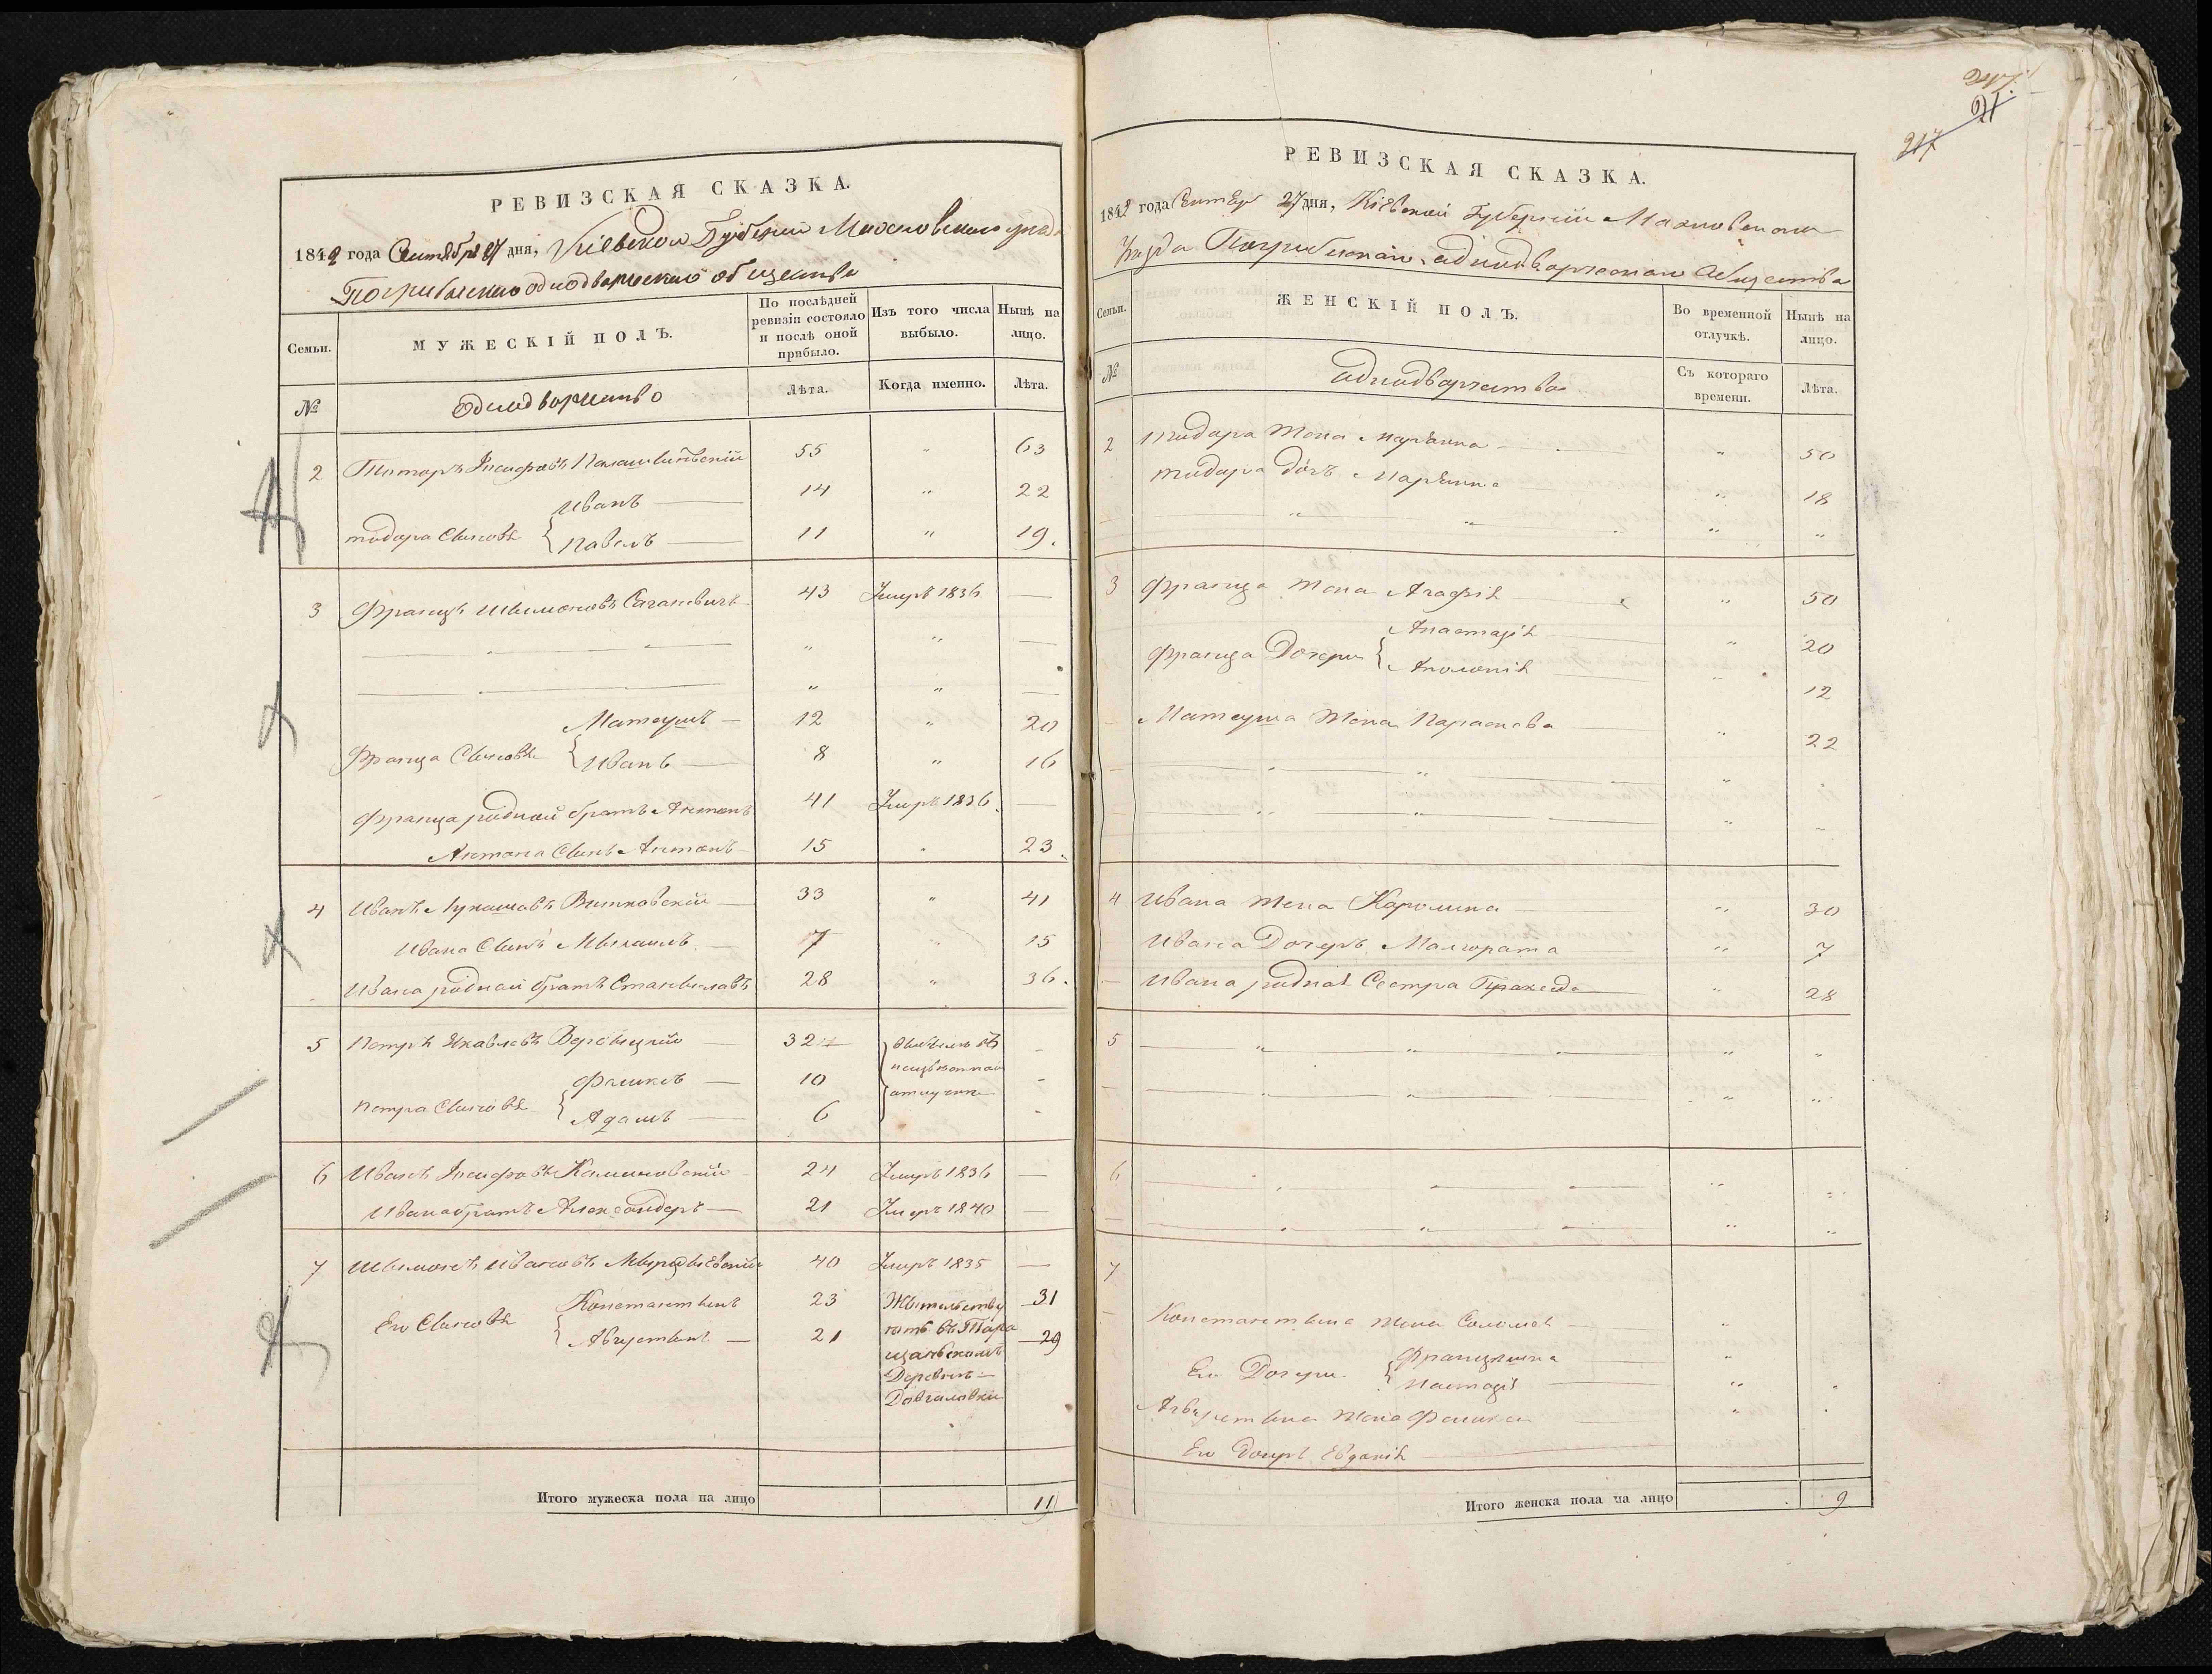 РЕВИЗСКАЯ СКАЗКА.
1842 года Сентября 27 дня, Кіевской Губерніи Махновскаго уезда
Погрибыскаго однодворческаго общества
Семьи.
МУЖЕСКІЙ ПОЛЪ.
По послѣдней ревизіи состояло и послѣ оной прибыло.
Изъ того числа выбыло.
Нынѣ на лицо.
№
Однодворчество
Лѣта.
Когда именно.
Лѣта.
2 Тодоръ Іосифовъ 55 " 63
Иванъ 14 " 22
тодора Сыновья Павелъ 11 " 19.
3 Францъ Шимоновъ 43 Умеръ 1836 —
" "
" "
Матеушъ 12 " 20
Франца Сыновья Иванъ 8 " 16
Франца родной братъ Антонъ 41 Умеръ 1836. —
Антона Сынъ Антонъ 15 " 23.
4 Иванъ Лукашовъ Витковскій 33 " 41
Ивана Сынъ Михаилъ 7 " 15
Ивана родной братъ Станиславъ 28 " 36.
5 Петръ Яковлевъ 32 -
Феликсъ 10 -
Петра Сыновья Адамъ 6 -
отлучки
6 Иванъ Іосифовъ Калиновскій 24 Умеръ 1836 —
Ивана братъ Александеръ 21 Умеръ 1840 —
7 Шимонъ Ивановъ 40 Умеръ 1835 —
Константинъ 23 Жительству 31
Его Сыновья Августинъ 21 ютъ въ Тара 29
щанскомъ
Деревнѣ
Довгаловки
Итого мужеска пола на лицо 11
247.
21
217
РЕВИЗСКАЯ СКАЗКА.
1842 года Сентября 27 дня, Кіевской Губерніи Махновскаго
Уезда Погрибискаго однодворческаго Общества
Семьи.
ЖЕНСКІЙ ПОЛЪ.
Во временной отлучкѣ.
Нынѣ на лицо.
№
однодворчества
Съ котораго времени.
Лѣта.
2 тидора жена Маріанна " 50
тидора дочъ Маріанна " 18
" " " "
3 Франца жена Агафія " 50
Анастазія " 20
Франца Дочери Аполонія " 12
Матеуша жена Параскева " 22
" " " "
" " " "
4 Ивана жена Каролина " 30
Ивана Дочерь Малгората " 7
Ивана родная Сестра Пракседа " 28
5 " " " " "
" " " " "
6 " " " "
" " " "
7
Константина жена Соломея "
Францишка "
Его Дочери Настазія " "
Августина жена Феликса " "
Его Дочерь Евдокія
Итого женска пола на лицо 9